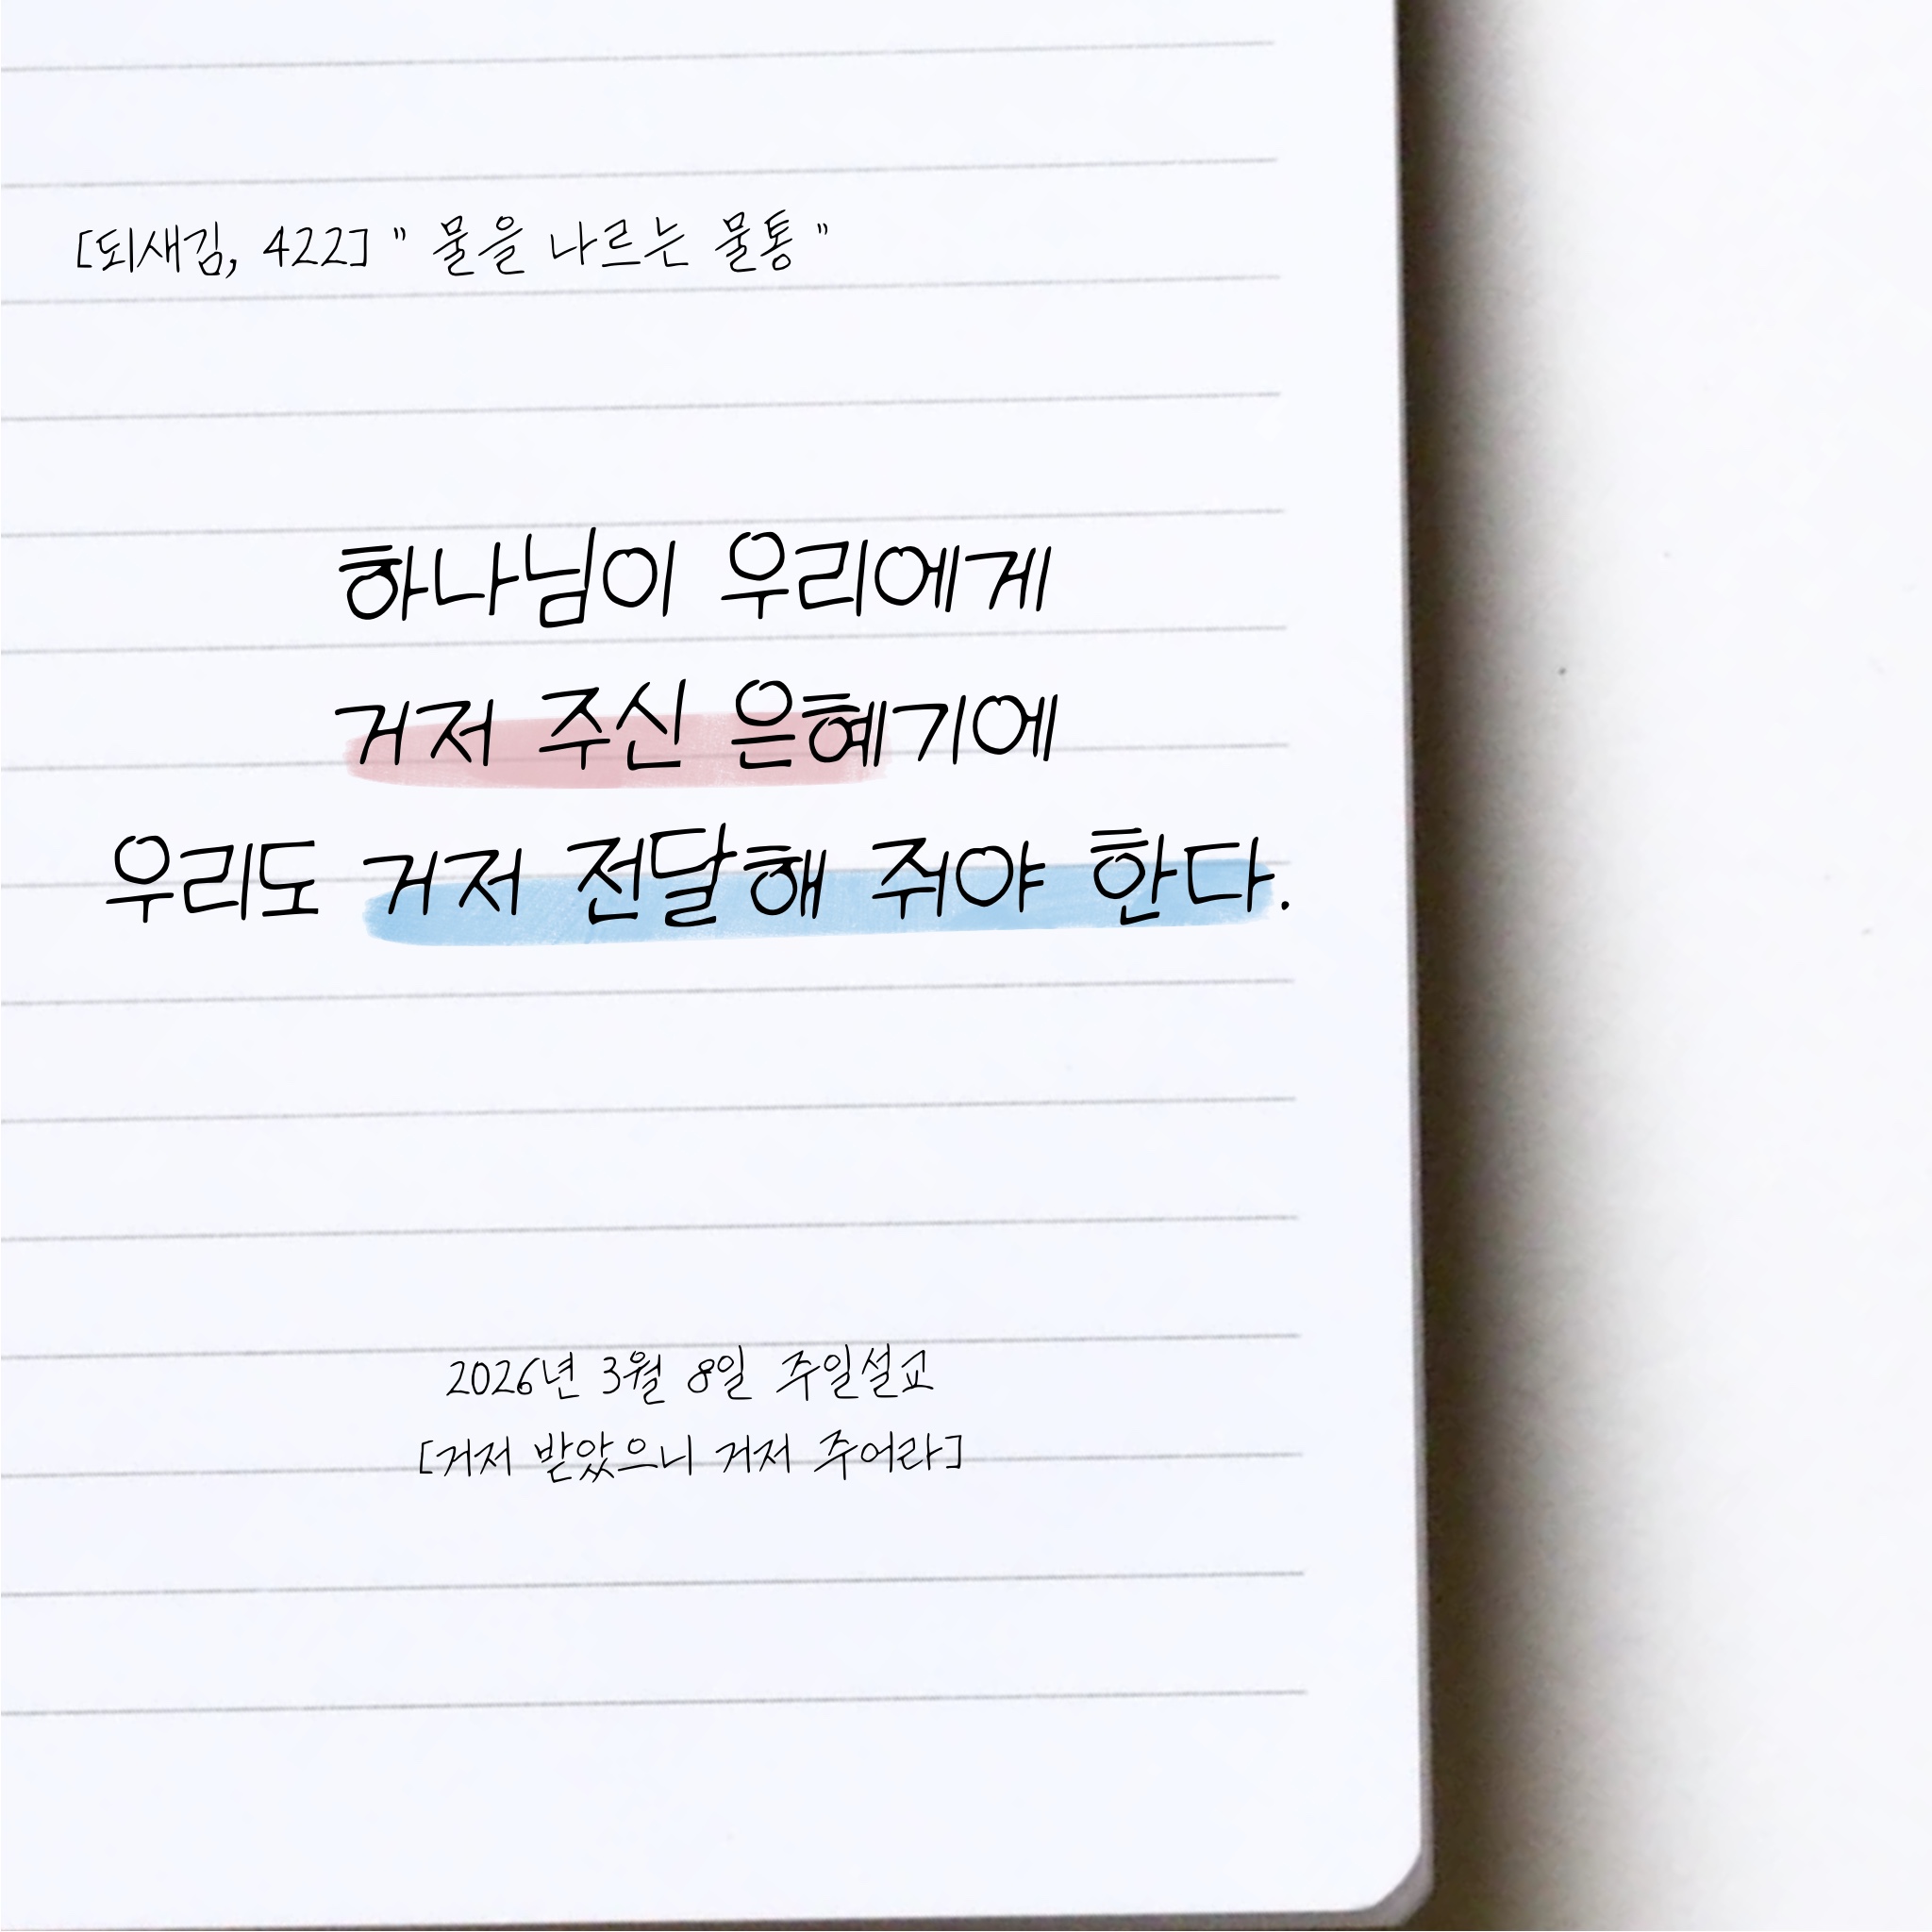 [되새김, 422] " 물을 나르는 물통 "
하나님이 우리에게
거저 주신 은혜기에
우리도 거저 전달해 줘야 한다.
2026년 3월 8일 주일설교
[거저 받았으니 거저 주어라]